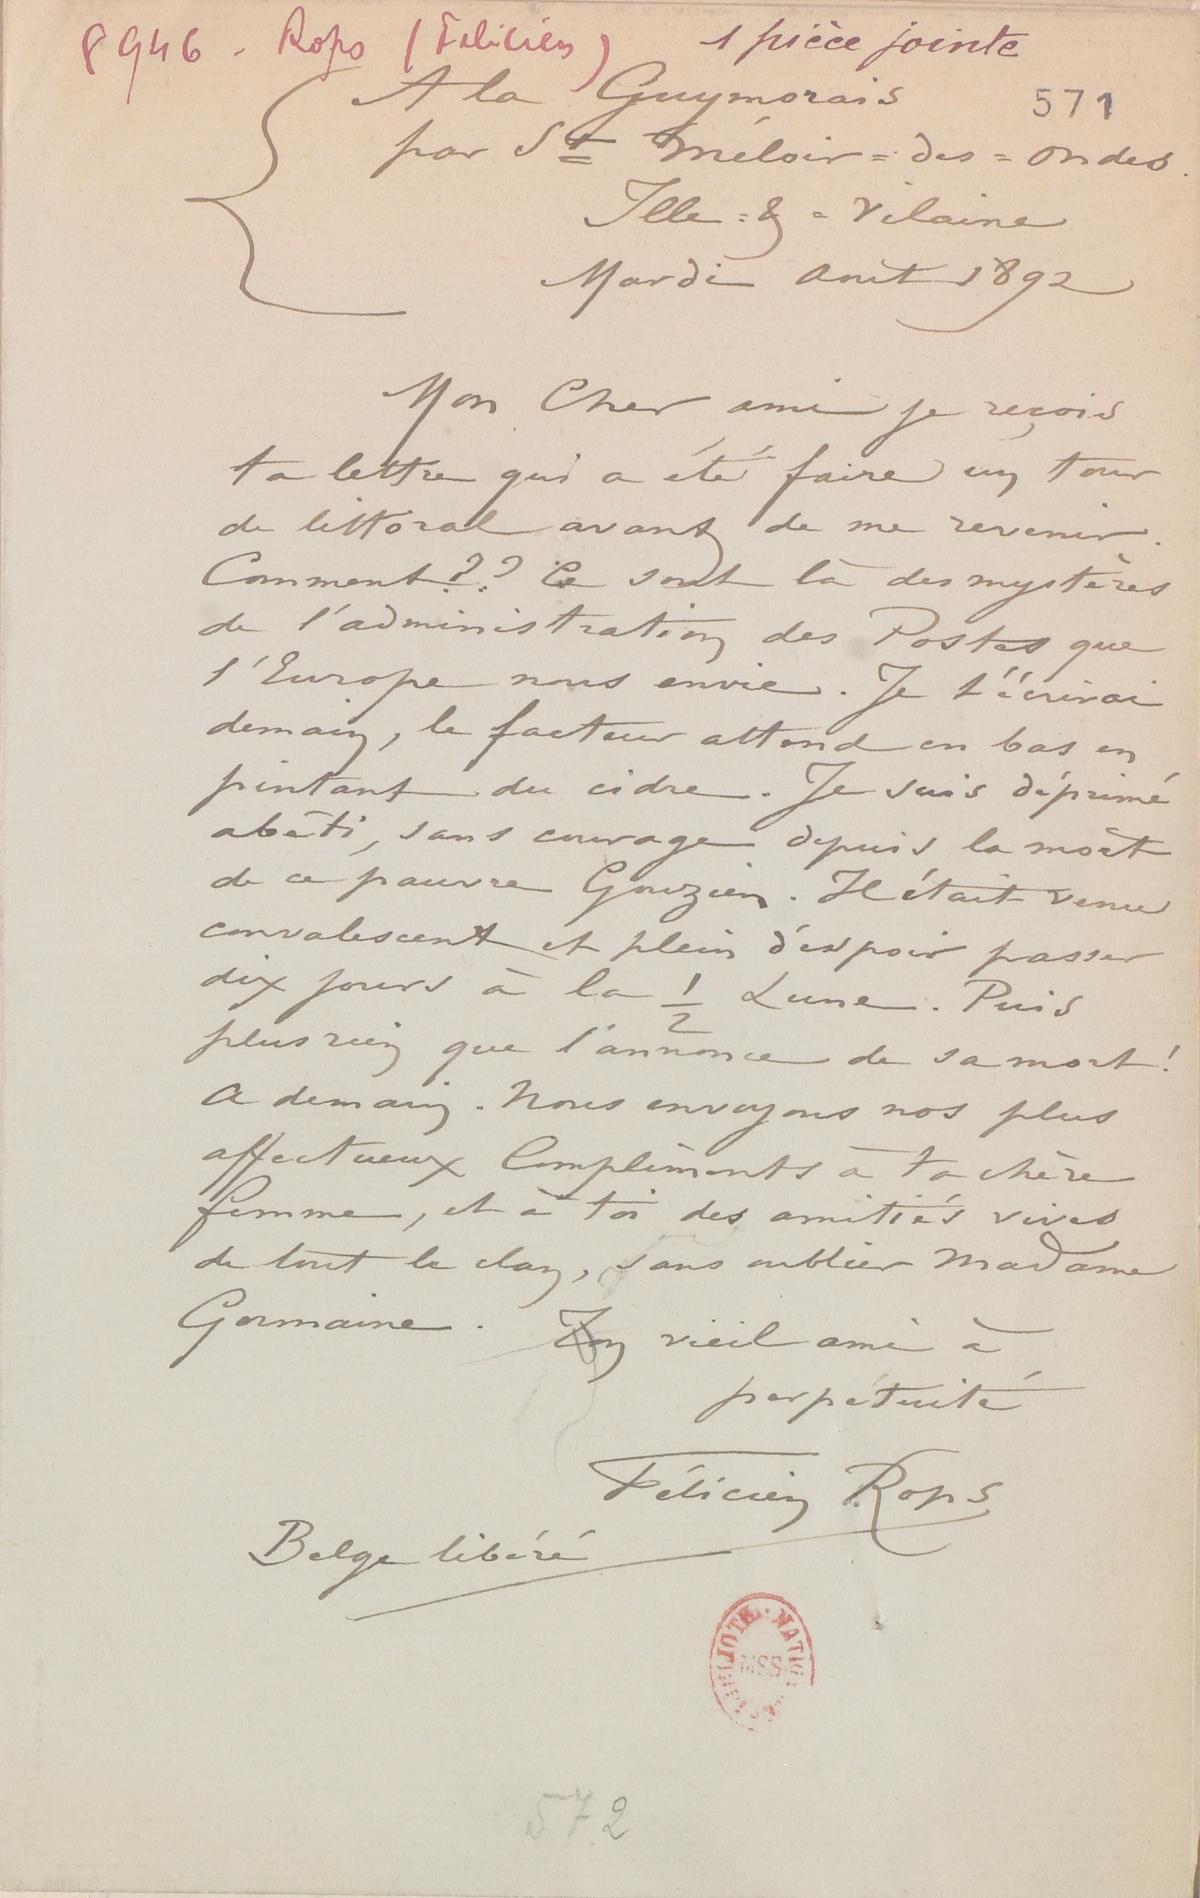 8946. Rops (Félicien) 1 pièce jointe
571
A la Guymorais
par St Méloir=des=Ondes.
Ille=&=Vilaine
Mardi Août 1892
Mon Cher ami je reçois
ta lettre qui a été faire un tour
de littoral avant de me revenir.
Comment?? Ce sont là des mystères
de l'administration des Postes que
l'Europe nous envie. Je t'écrirai
demain, le facteur attend en bas en
pintant du cidre. Je suis déprimé
abêti, sans courage depuis la mort
de ce pauvre Gouzien. Il était venu
convalescent et plein d'espoir passer
dix jours à la 1/2 Lune. Puis
plus rien que l'annonce de sa mort!
A demain. Nous envoyons nos plus
affectueux Compliments à ta chère
femme, et à toi des amitiés vives
de tout le clan, sans oublier Madame
Germaine. Ton vieil ami à
perpétuité
Félicien Rops
Belge libéré
BIBLIOTH. NATIO
MSS
572